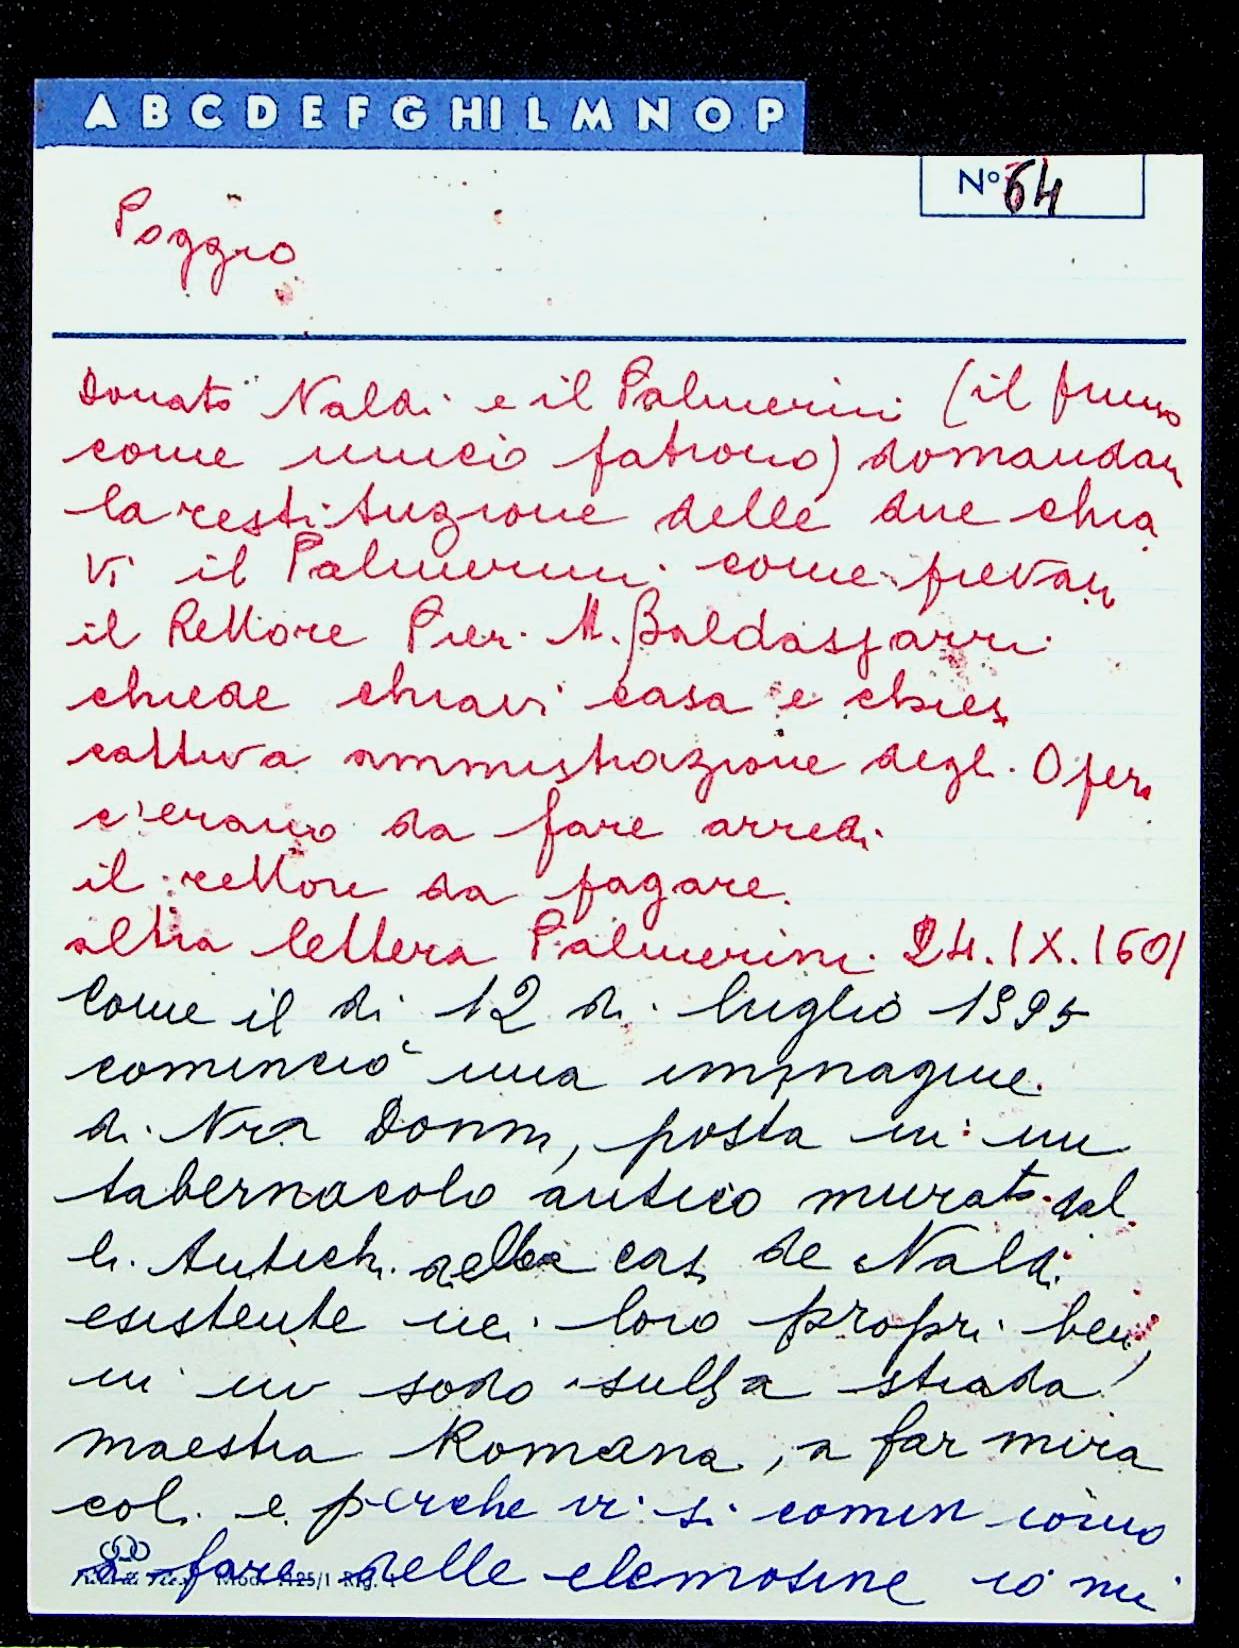 A B C D E F G HI L M N O P
Nº 64
Poggio
Donato Naldi e il Palmerini (il primo
come unico patrono) domandan
la restituzione delle due chia
vi il Palmerini come pievan
il Rettore Pier M. Baldassarri
chiede chiavi casa e chies
cattiva amministrazione degl. Oper
c'erano da fare arredi
il rettore da pagare.
altra lettera Palmerini 24.IX.1601
Come il dì 12 di luglio 1595
cominciò una immagine
di Nra Donna, posta in un
tabernacolo antico murato dal
li Antichi della cas de Naldi
esistente nei loro propri beni,
in un sodo sulla strada
maestra Romana, a far mira
coli e perche vi si comin
a fare delle elemosine io mi